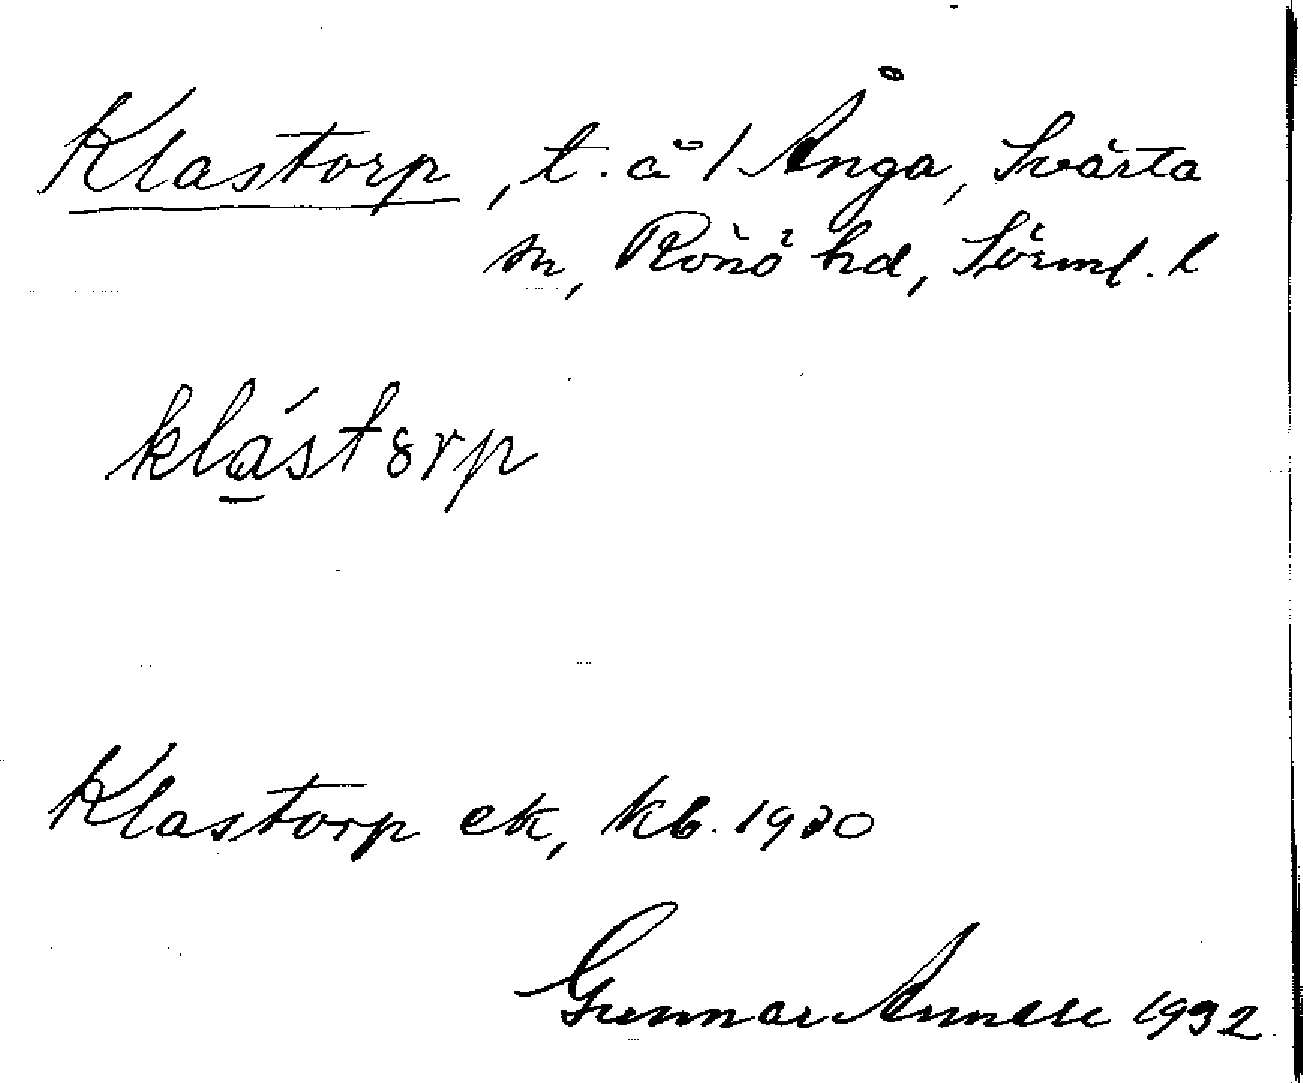 Klastorp, t. å 1 Ånga, Svärta
sn, Rönö hd, Sörml. l
klást8rp
Klastorp ek, kb. 1930
Gunnar Annell 1932.